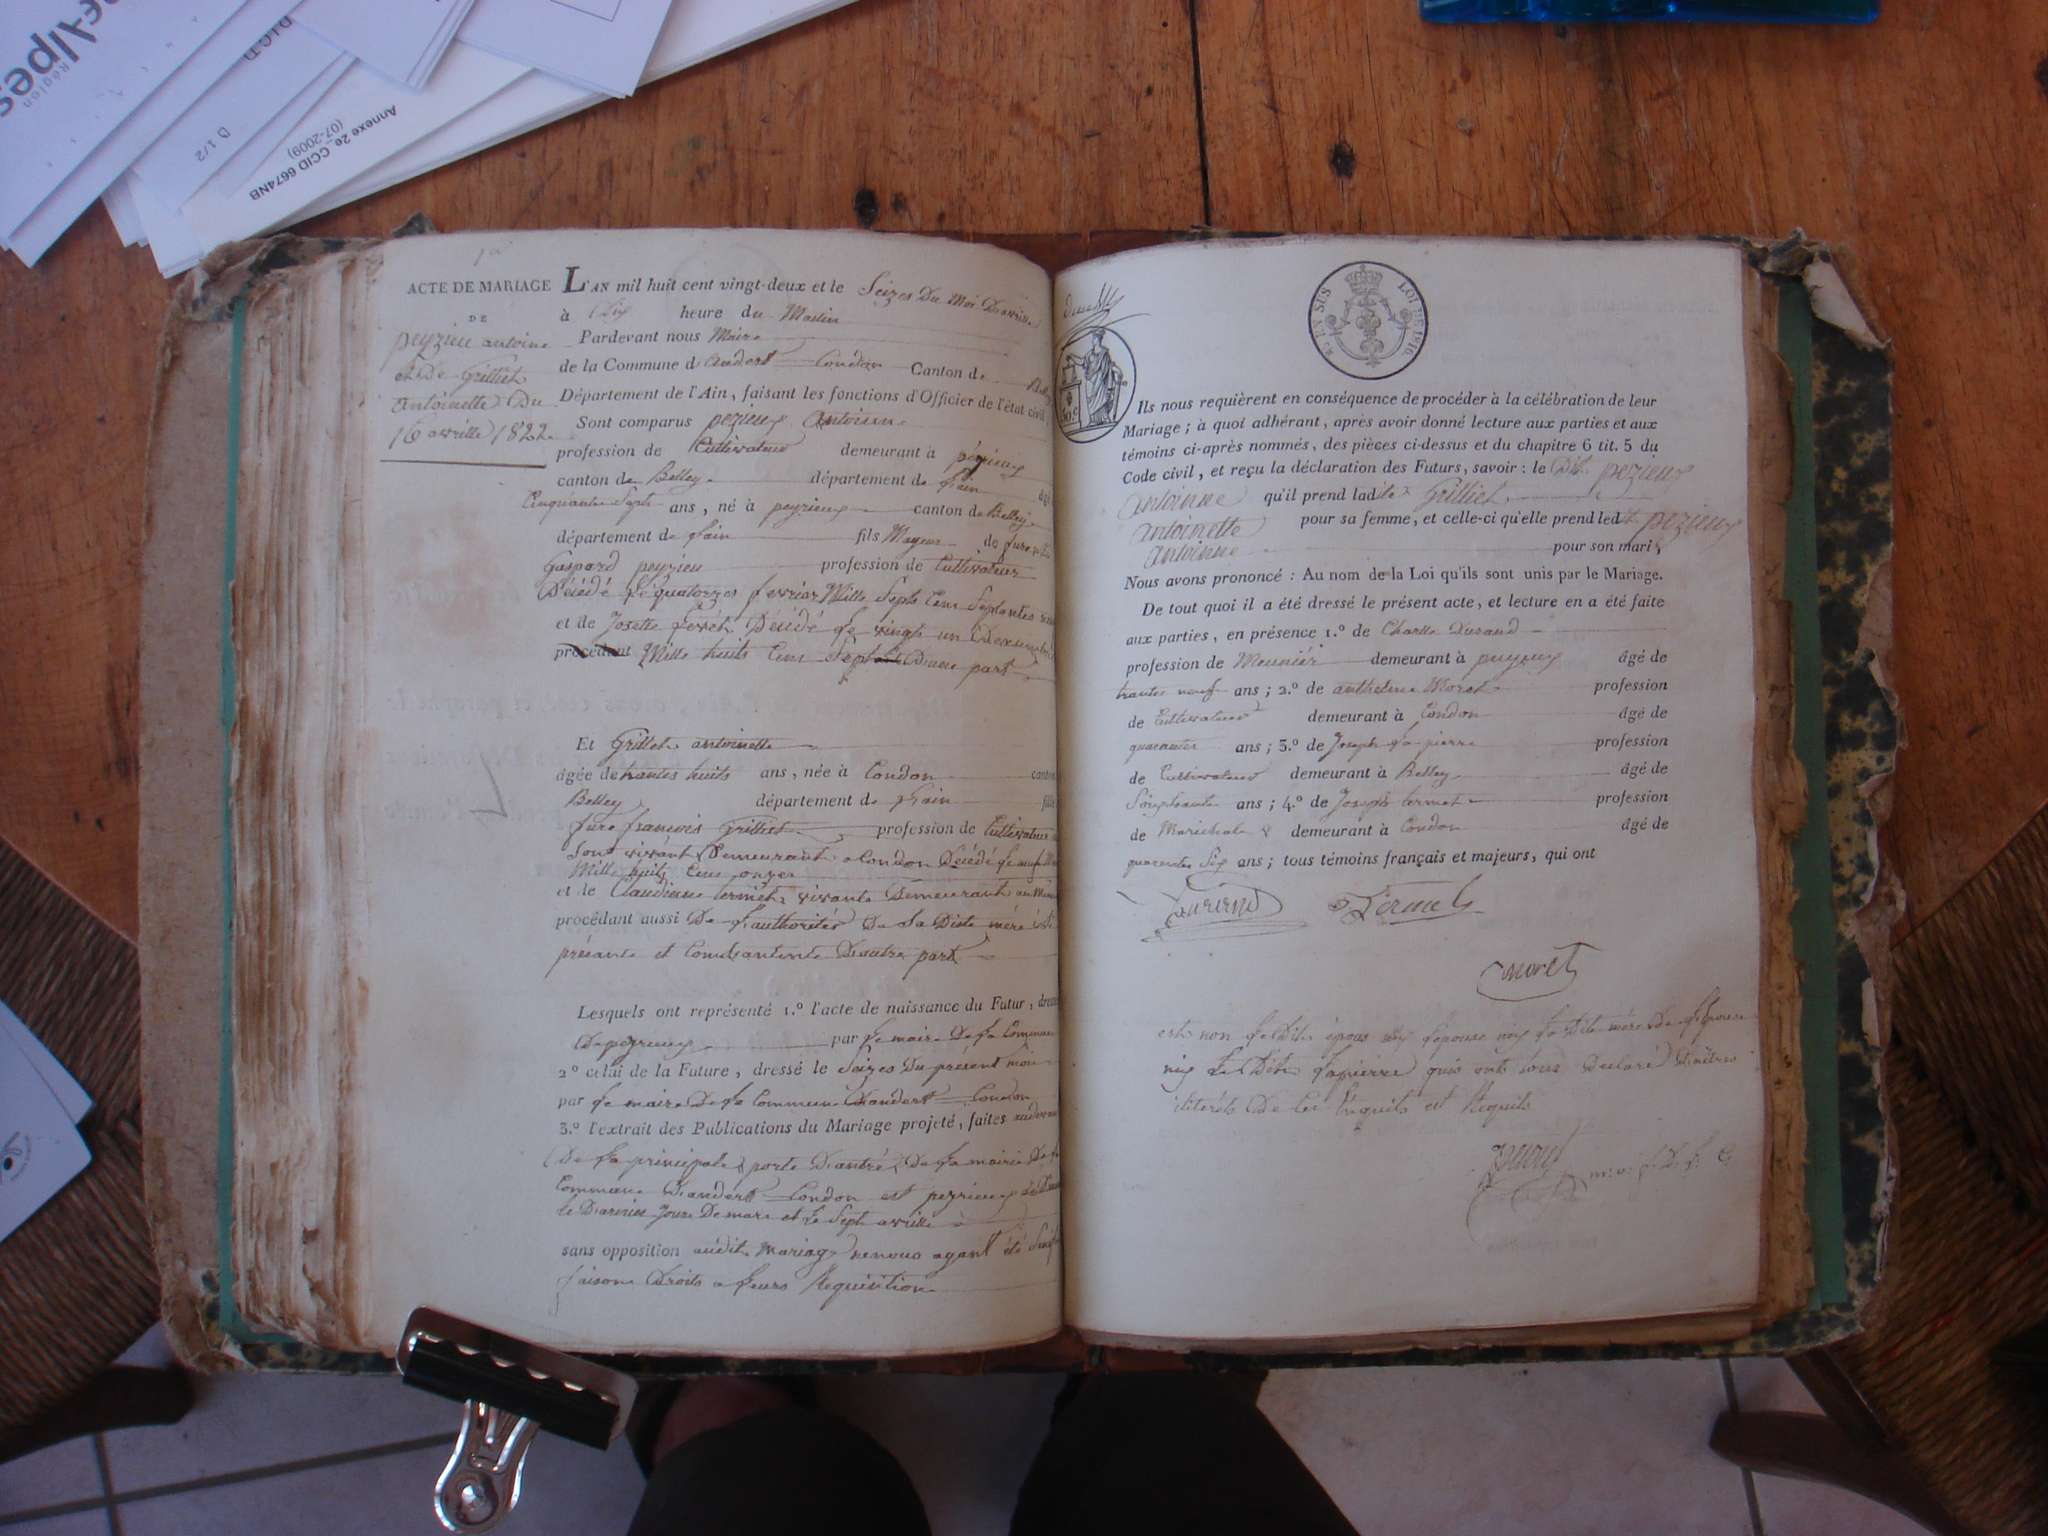 eAlpes
Région
DICTD
D 1/2
Annexe 2e_CCID 6674NB
(07-2009)
ACTE DE MARIAGE
DE
peyzieu antoine
et de Grilliet
antoinette Du
16 avrille 1822
L'AN mil huit cent vingt-deux et le Seizes Du Moi D'avrille
à Dix heure du Matin
Pardevant nous Maire
de la Commune d'andert Condon Canton de
Département de l'Ain, faisant les fonctions d'Officier de l'état civil
Sont comparus pezieux Antoinne
profession de Cultivateur demeurant à peyrieux
canton de Belley département de l'ain
Cinquante Sept ans, né à peyrieux canton de Belley
département de l'ain fils Majeur de fure
Gaspard peyrieu profession de Cultivateur
Décédé le quatorzes fevrier Mille Septs Cens Septantes
et de Josette Décédé le vingt un
procédant Mille huits Cens Sept D'une part
Et Grillet antoinette
âgée de trantes huits ans, née à Condon canton
Belley département de l'ain
fure françois Grilliet profession de Cultivateur
Son vivant Demeurant a Condon Décédé le neuf
Mille huits Cens onzes
et le Claudine termet vivante Demeurant
procédant aussi De l'authorités De Sa Diste mère
présante et Condsantente D'autre part
Lesquels ont représenté 1.º l'acte de naissance du Futur, dressé
De peyrieux par le maire De la Commune
2º celui de la Future, dressé le Seizes Du présent moi
par le maire De la Commune D'andert Condon
3.º l'extrait des Publications du Mariage projeté, faites audevant
De la principale porte D'antré De la mairie De la
Commune D'andert Condon et peyrieux
le Darnier Jour De mars et le Sept avrille
sans opposition audit Mariage ne nous ayant été
faisons Droits a leurs Requisition
R. EN SUS LOI DE 1816.
Ils nous requièrent en conséquence de procéder à la célébration de leur
Mariage ; à quoi adhérant, après avoir donné lecture aux parties et aux
témoins ci-après nommés, des pièces ci-dessus et du chapitre 6 tit. 5 du
Code civil, et reçu la déclaration des Futurs, savoir : le Dit pezieux
Antoinne qu'il prend ladite Grilliet
Antoinette pour sa femme, et celle-ci qu'elle prend ledit pezieux
Antoinne pour son mari,
Nous avons prononcé : Au nom de la Loi qu'ils sont unis par le Mariage.
De tout quoi il a été dressé le présent acte, et lecture en a été faite
aux parties, en présence 1.º de Charlle Durand
profession de Meuniér demeurant à âgé de
trantes neuf ans ; 2.º de anthelme Moret profession
de Cultivateur demeurant à Condon âgé de
quarantes ans ; 3.º de Joseph la pierre profession
de Cultivateur demeurant à Belley âgé de
Soixsante ans ; 4.º de Joseph termet profession
de Marichal demeurant à Condon âgé de
quarentes Six ans ; tous témoins français et majeurs, qui ont
Termet
moret
est non le Dit époux niy l'épouse niy la Dite mère De l'épouse
niy Le Dit lapierre quis ont tous Déclaré D'aitres
iliterés De Ce Enquits est Requits